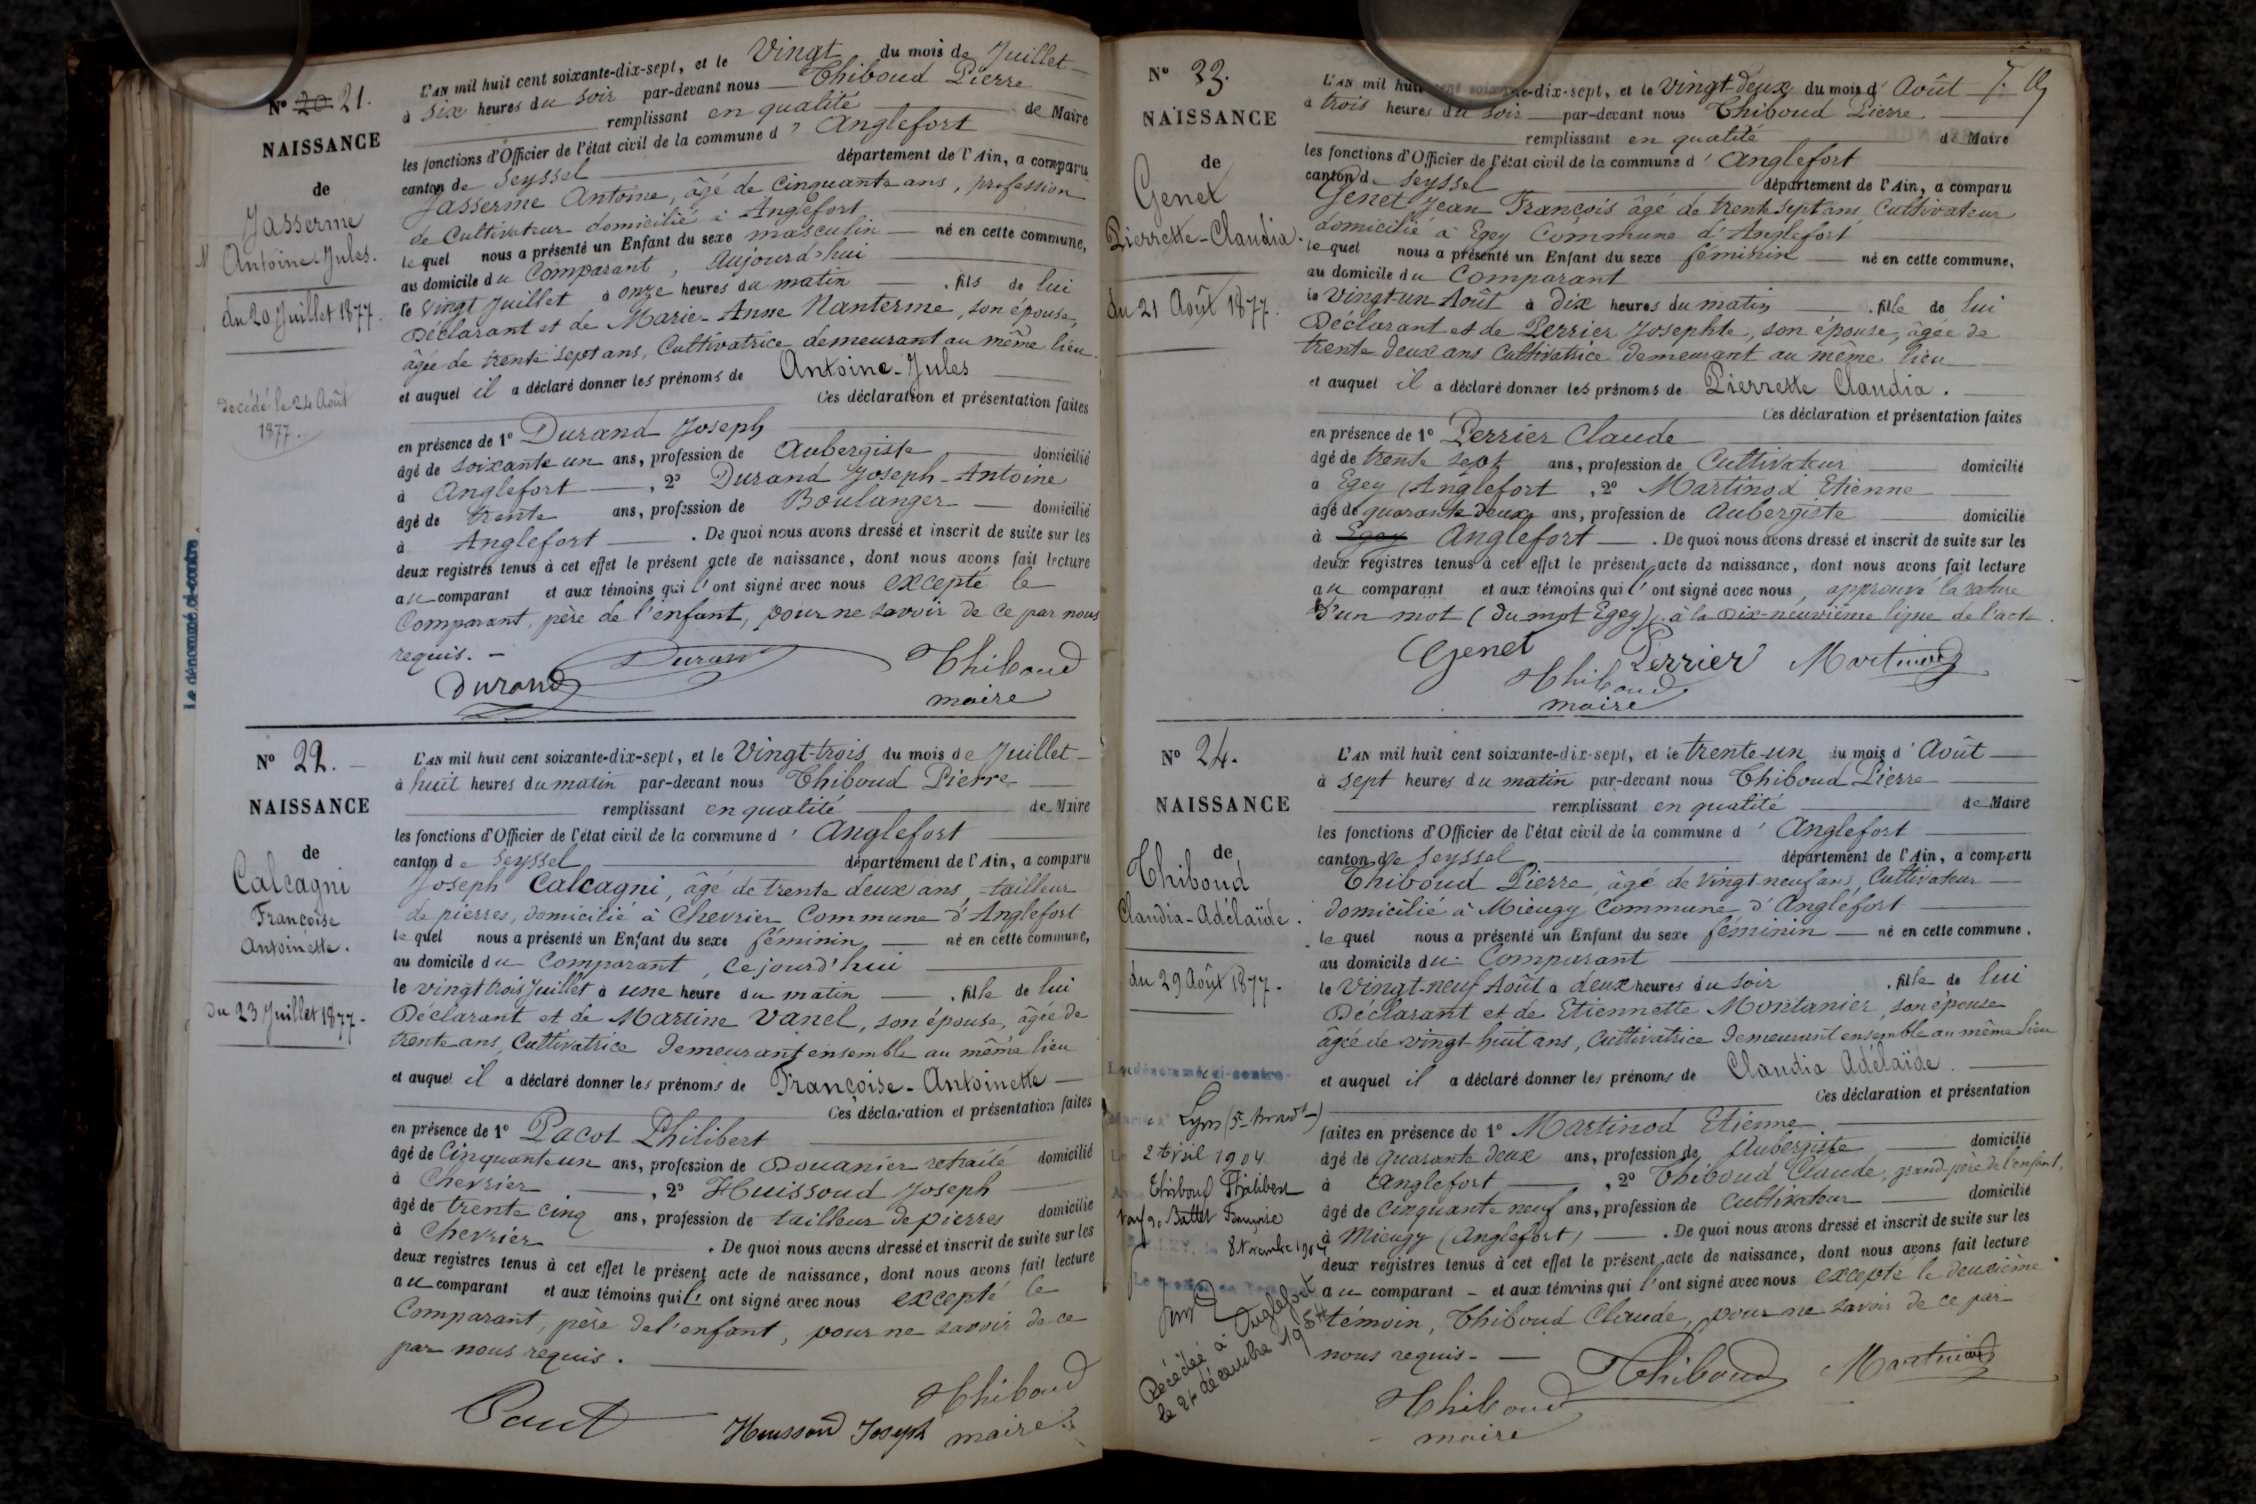 N° 20. 21.
NAISSANCE
de
Jasserme
Antoine-Jules.
du 20 Juillet 1877.
décédé le 24 Août
1877.
Le dénommé ci-contre
L'AN mil huit cent soixante-dix-sept, et le Vingt du mois de Juillet
à six heures du soir par-devant nous Thiboud Pierre
remplissant en qualité de Maire
les fonctions d'Officier de l'état civil de la commune d' Anglefort
canton de Seyssel département de l'Ain, a comparu
Jasserme Antoine, âgé de Cinquante ans, profession
de Cultivateur domicilié à Anglefort
lequel nous a présenté un Enfant du sexe masculin né en cette commune,
au domicile du Comparant, aujourd'hui
le vingt Juillet à onze heures du matin, fils de lui
Déclarant et de Marie-Anne Nanterme, son épouse,
âgée de trente sept ans, Cultivatrice demeurant au même lieu.
et auquel il a déclaré donner les prénoms de Antoine-Jules
Ces déclaration et présentation faites
en présence de 1° Durand Joseph
âgé de soixante un ans, profession de Aubergiste domicilié
à Anglefort, 2° Durand Joseph-Antoine
âgé de trente ans, profession de Boulanger domicilié
à Anglefort. De quoi nous avons dressé et inscrit de suite sur les
deux registres tenus à cet effet le présent acte de naissance, dont nous avons fait lecture
au comparant et aux témoins qui l'ont signé avec nous excepté le
Comparant, père de l'enfant, pour ne savoir de ce par nous
requis.
Durand
Durand Thiboud
maire
N° 22.
NAISSANCE
de
Calcagni
Françoise
Antoinette.
du 23 Juillet 1877.
L'AN mil huit cent soixante-dix-sept, et le Vingt-trois du mois de Juillet
à huit heures du matin par-devant nous Thiboud Pierre
remplissant en qualité de Maire
les fonctions d'Officier de l'état civil de la commune d' Anglefort
canton de Seyssel département de l'Ain, a comparu
Joseph Calcagni, âgé de trente deux ans, tailleur
de pierres, domicilié à Chevrier Commune d'Anglefort
lequel nous a présenté un Enfant du sexe féminin né en cette commune,
au domicile du Comparant, cejourd'hui
le vingt trois Juillet à une heure du matin, fille de lui
Déclarant et de Martine Vanel, son épouse, âgée de
trente ans, Cultivatrice demeurant ensemble au même lieu
et auquel il a déclaré donner les prénoms de Françoise-Antoinette
Ces déclaration et présentation faites
en présence de 1° Pacot Philibert
âgé de Cinquante un ans, profession de Douanier retraité domicilié
à Chevrier, 2° Huissoud Joseph
âgé de trente cinq ans, profession de tailleur de pierres domicilié
à Chevrier. De quoi nous avons dressé et inscrit de suite sur les
deux registres tenus à cet effet le présent acte de naissance, dont nous avons fait lecture
au comparant et aux témoins qui l'ont signé avec nous excepté le
Comparant, père de l'enfant, pour ne savoir de ce
par nous requis.
Thiboud
Huissoud Joseph maire
N° 23.
NAISSANCE
de
Genet
Pierrette-Claudia.
du 21 Août 1877.
L'AN mil huit cent soixante-dix-sept, et le vingt-deux du mois d' Août
à trois heures du soir par-devant nous Thiboud Pierre
remplissant en qualité de Maire
les fonctions d'Officier de l'état civil de la commune d' Anglefort
canton de Seyssel département de l'Ain, a comparu
Genet Jean François âgé de trente sept ans, Cultivateur
domicilié à Egey Commune d'Anglefort
lequel nous a présenté un Enfant du sexe féminin né en cette commune,
au domicile du Comparant
le vingt-un Août à dix heures du matin, fille de lui
Déclarant et de Perrier Josephte, son épouse, âgée de
trente deux ans Cultivatrice demeurant au même lieu
et auquel il a déclaré donner les prénoms de Pierrette Claudia.
Ces déclaration et présentation faites
en présence de 1° Perrier Claude
âgé de trente sept ans, profession de Cultivateur domicilié
à Egey (Anglefort, 2° Martinod Etienne
âgé de quarante deux ans, profession de Aubergiste domicilié
à Egey Anglefort. De quoi nous avons dressé et inscrit de suite sur les
deux registres tenus à cet effet le présent acte de naissance, dont nous avons fait lecture
au comparant et aux témoins qui l'ont signé avec nous, approuvé la rature
d'un mot (du mot Egey) à la dix-neuvième ligne de l'acte.
Genet Perrier Martinod
Thiboud
maire
N° 24.
NAISSANCE
de
Thiboud
Claudia-Adélaïde.
du 29 Août 1877.
Le dénommé ci-contre
Lyon (5e Arrondt)
2 Avril 1904
Thiboud Philibert
8 Novembre 1904
Décédée à Anglefort
le 24 décembre 1954
L'AN mil huit cent soixante-dix-sept, et le trente-un du mois d' Août
à sept heures du matin par-devant nous Thiboud Pierre
remplissant en qualité de Maire
les fonctions d'Officier de l'état civil de la commune d' Anglefort
canton de Seyssel département de l'Ain, a comparu
Thiboud Pierre, âgé de vingt neuf ans, Cultivateur
domicilié à Mieugy Commune d'Anglefort
lequel nous a présenté un Enfant du sexe féminin né en cette commune.
au domicile du Comparant
le Vingt-neuf Août à deux heures du soir, fille de lui
Déclarant et de Etiennette Montanier, son épouse
âgée de vingt huit ans, Cultivatrice demeurant ensemble au même lieu
et auquel il a déclaré donner les prénoms de Claudia Adélaïde.
Ces déclaration et présentation
faites en présence de 1° Martinod Etienne
âgé de quarante deux ans, profession de Aubergiste domicilié
à Anglefort, 2° Thiboud Claude, grand-père de l'enfant,
âgé de Cinquante neuf ans, profession de cultivateur domicilié
à Mieugy (Anglefort). De quoi nous avons dressé et inscrit de suite sur les
deux registres tenus à cet effet le présent acte de naissance, dont nous avons fait lecture
au comparant et aux témoins qui l'ont signé avec nous excepté le deuxième
témoin, Thiboud Claude, pour ne savoir de ce par
nous requis.
Thiboud Martinod
Thiboud
maire